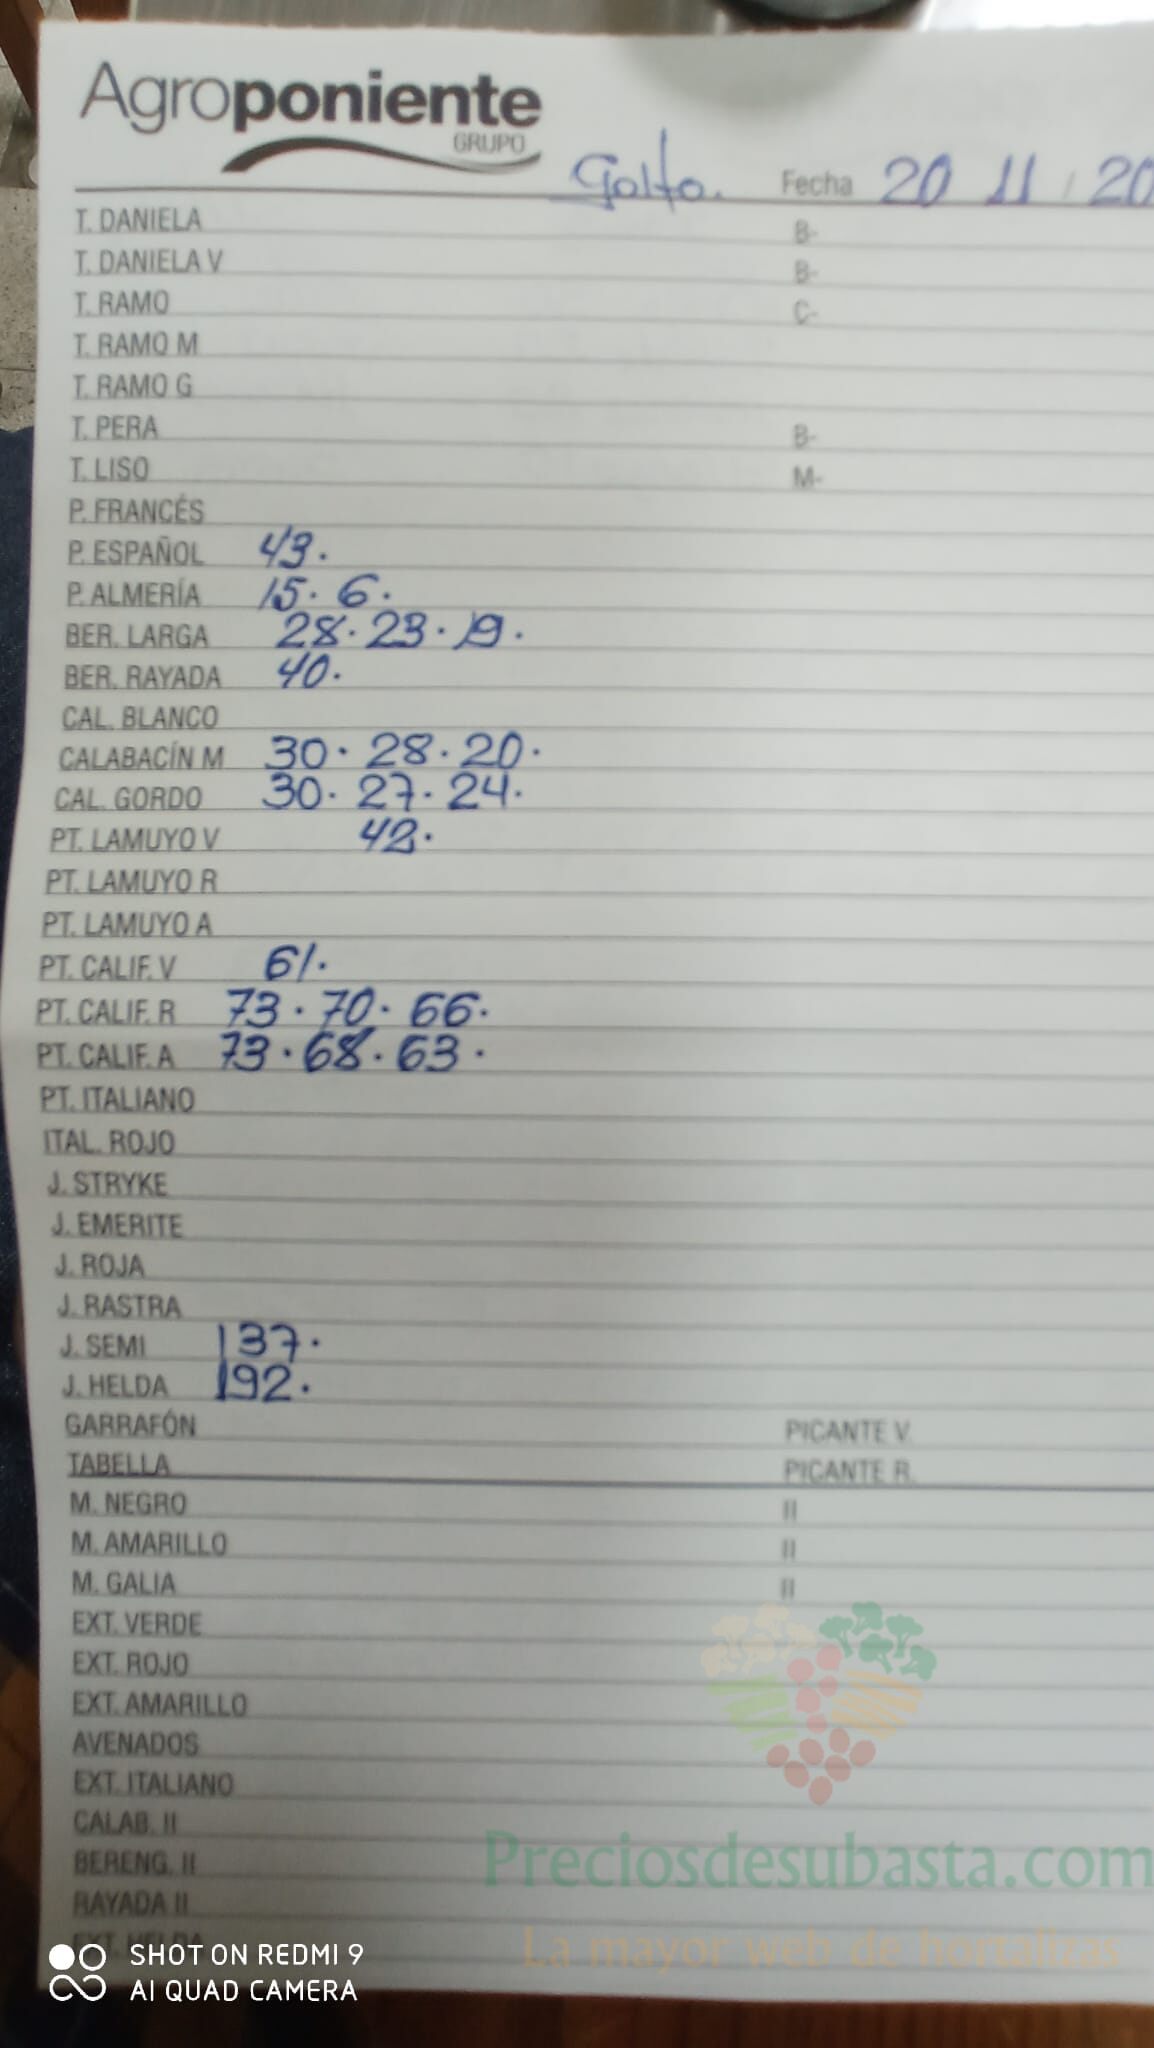 Agroponiente
GRUPO
Golfo. Fecha 20 11 / 20
T. DANIELA B-
T. DANIELA V B-
T. RAMO C-
T. RAMO M
T. RAMO G
T. PERA B-
T. LISO M-
P. FRANCÉS
P. ESPAÑOL 43.
P. ALMERÍA 15. 6.
BER. LARGA 28. 23. 19.
BER. RAYADA 40.
CAL. BLANCO
CALABACÍN M 30. 28. 20.
CAL. GORDO 30. 27. 24.
PT. LAMUYO V 42.
PT. LAMUYO R
PT. LAMUYO A
PT. CALIF. V 61.
PT. CALIF. R 73. 70. 66.
PT. CALIF. A 73. 68. 63.
PT. ITALIANO
ITAL. ROJO
J. STRYKE
J. EMERITE
J. ROJA
J. RASTRA
J. SEMI 137.
J. HELDA 192.
GARRAFÓN PICANTE V.
TABELLA PICANTE R.
M. NEGRO II
M. AMARILLO II
M. GALIA II
EXT. VERDE
EXT. ROJO
EXT. AMARILLO
AVENADOS
EXT. ITALIANO
CALAB. II
BERENG. II
RAYADA II
EXT. HELDA
Preciosdesubasta.com
La mayor web de hortalizas
SHOT ON REDMI 9
AI QUAD CAMERA